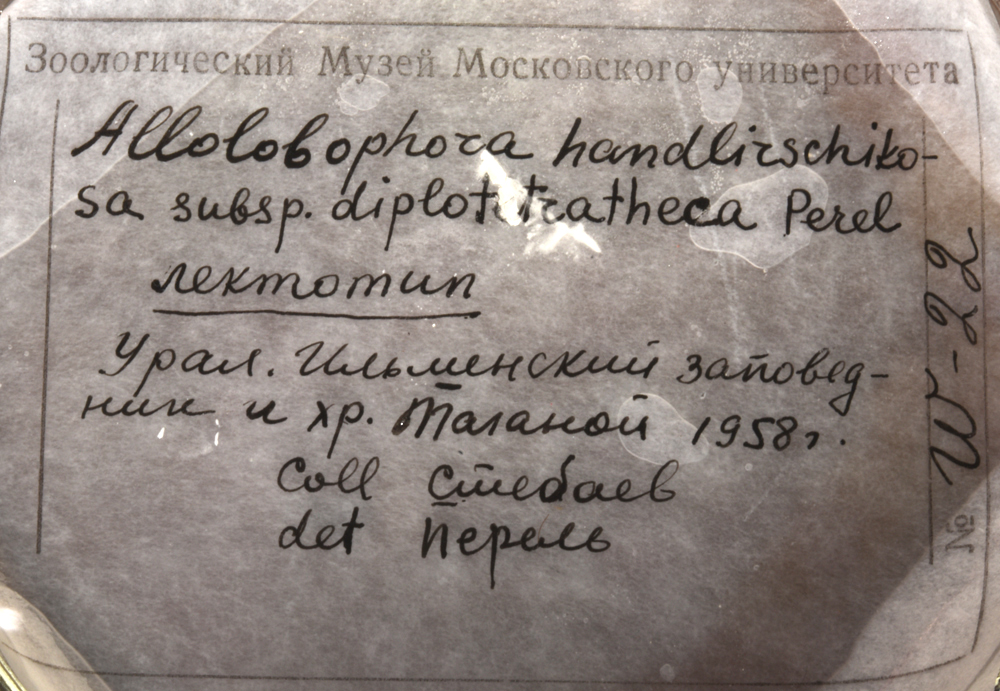 Зоологический Музей Московского университета
Allolobophora handlirschiko-
sa subsp. diplotetratheca Perel
лектотип
Урал. Ильменский заповед-
ник и хр. Таганой 1958г.
Coll Стебаев
det Перель
№ W-22